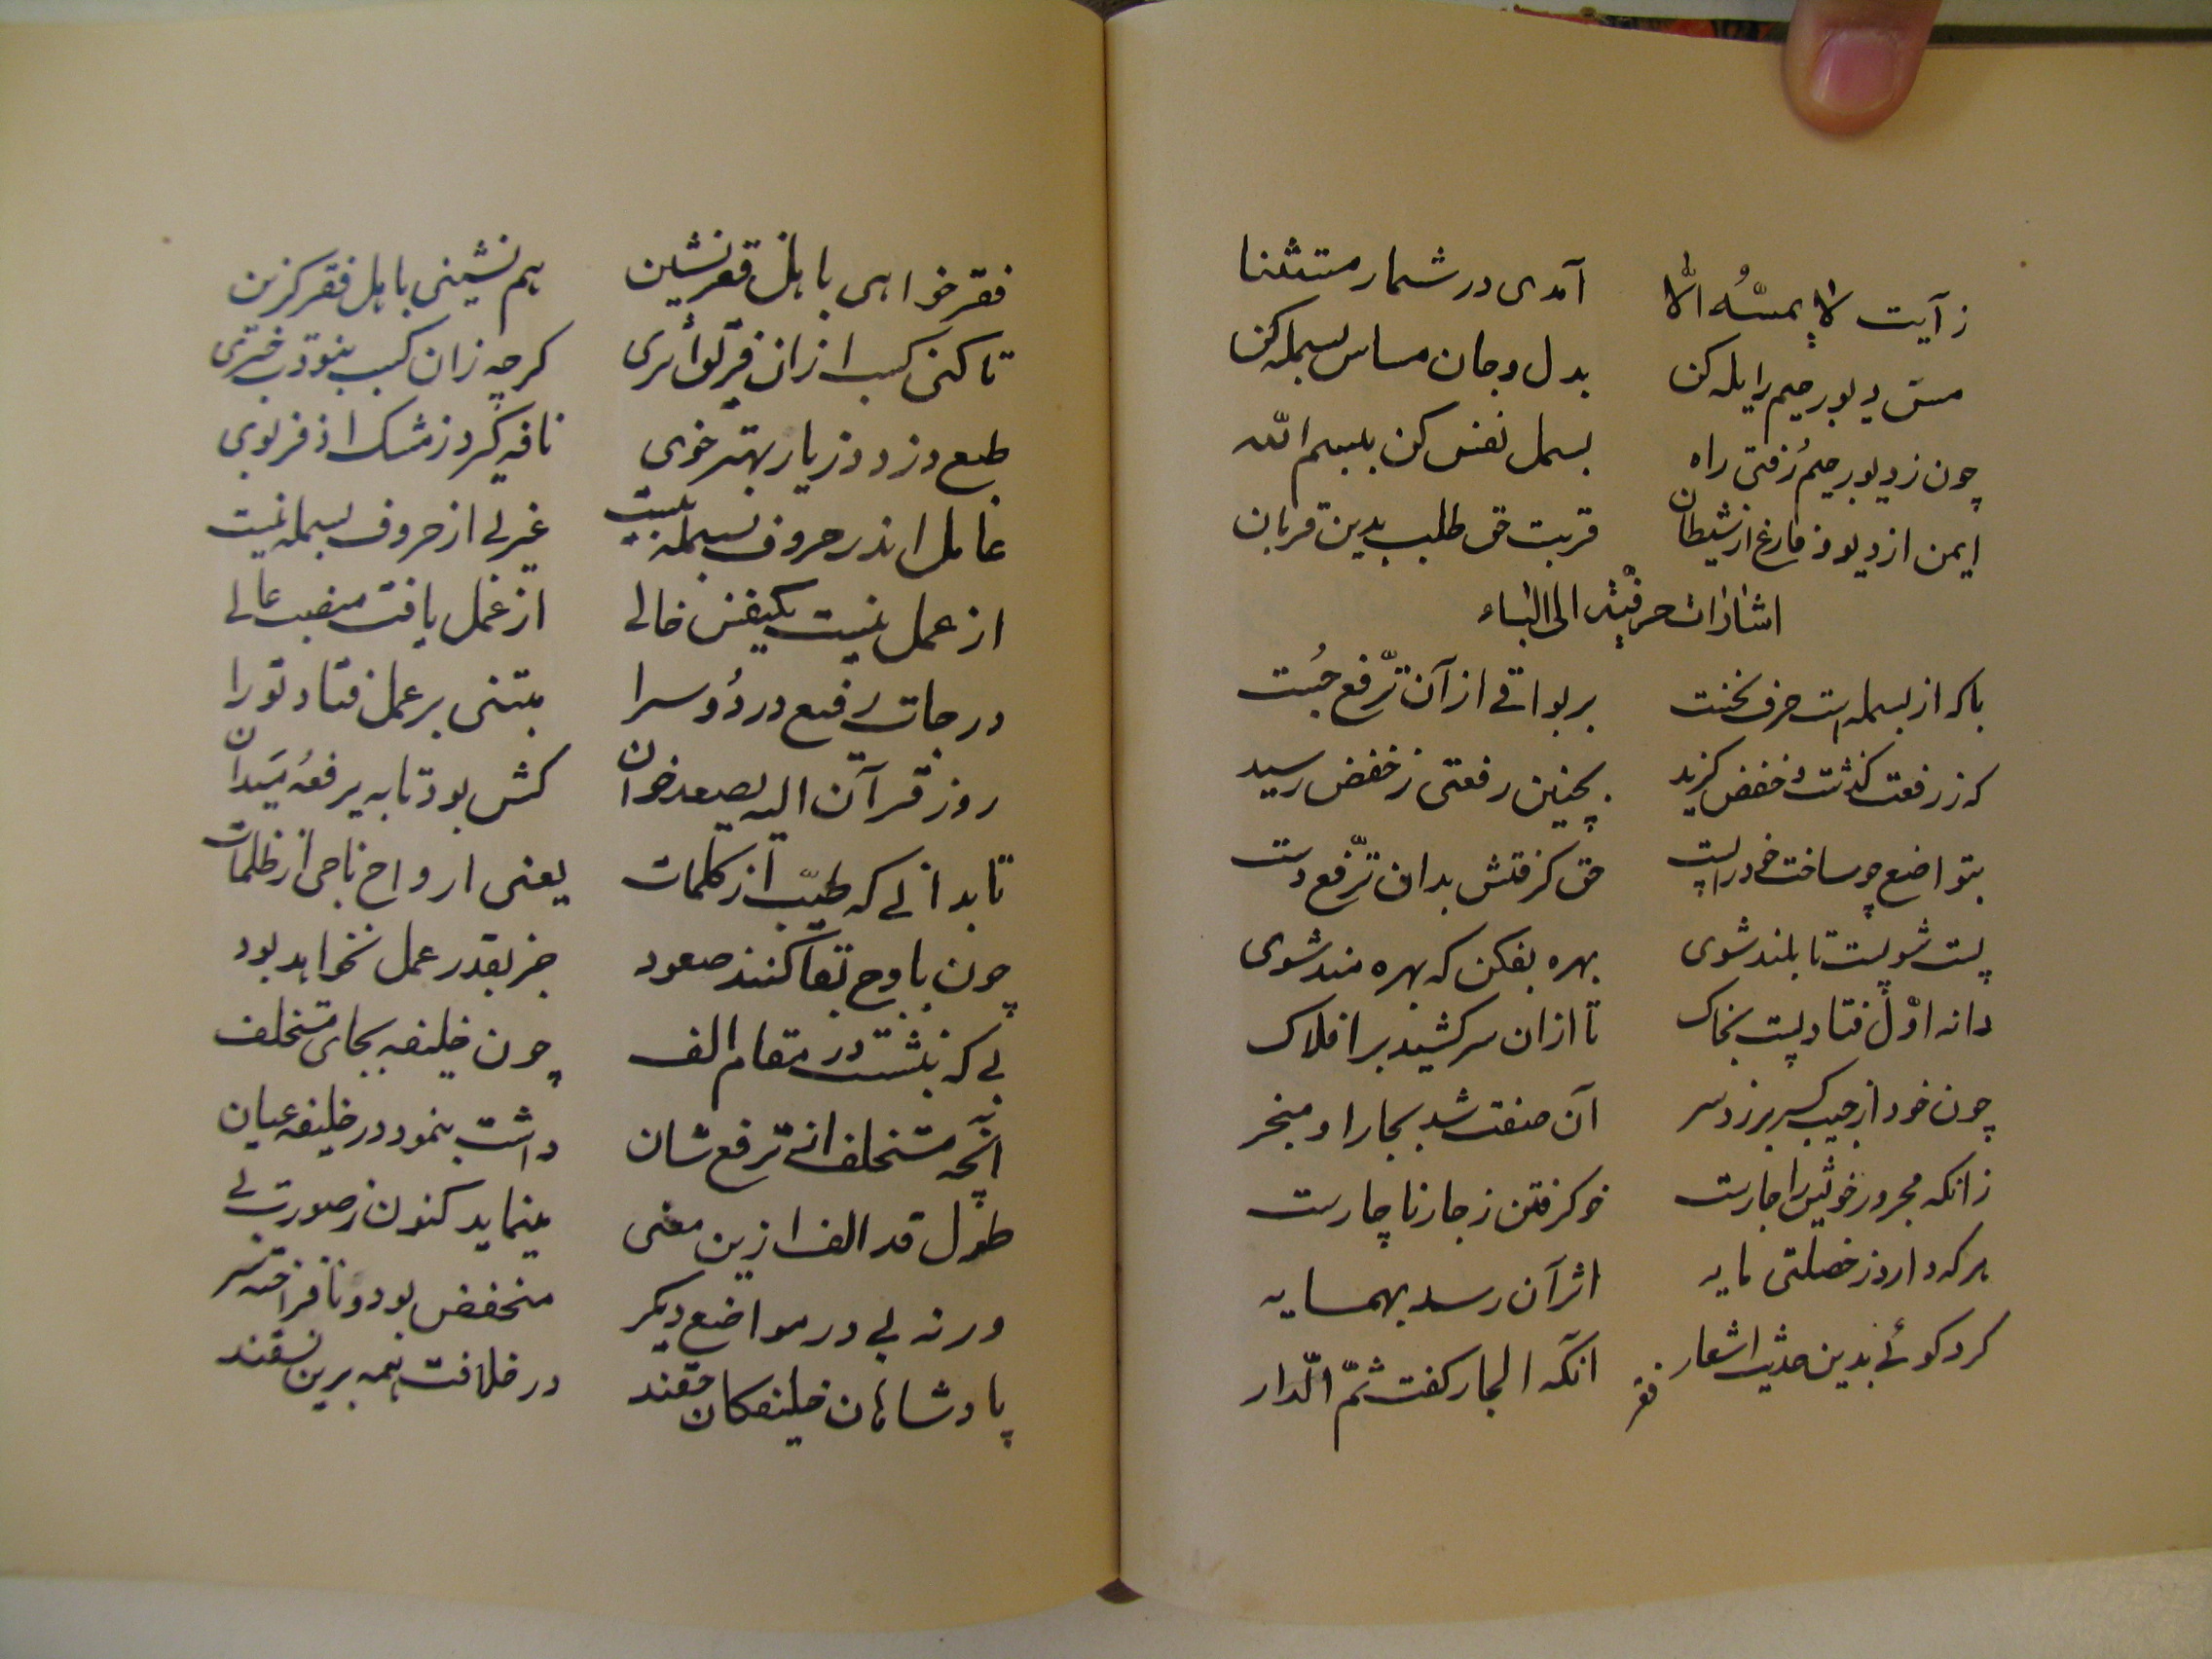 ز آیت لا یمسّه الا آمدی در شمار مستثنا
مس دیو رجیم را یله کن بدل و جان مساس بسمله کن
چون ز دیو رجیم رُفتی راه بسمل نفس کن ببسم الله
ایمن از دیو و فارغ از شیطان قربت حق طلب بدین قربان
اشارات حرفیّه الی الباء
با که از بسمله است حرف نخست بر بواقی از آن ترّفع جُست
که ز رفعت گذشت و خفض گزید بچنین رفعتی ز خفض رسید
بتواضع چو ساخت خود را پست حق گرفتش بدان ترّفع دست
پست شو پست تا بلند شوی بهره بفکن که بهره مند شوی
دانه اوّل فتاد پست بخاک تا ازان سر کشید بر افلاک
چون خود از جیب کسر بر زد سر آن صفت شد بجار او منجر
زانکه مجرور خویش را جارست خو گرفتن ز جار ناچارست
هر که دارد ز خصلتی مایه اثر آن رسد بهمسایه
کرد گوئی بدین حدیث اشعار آنکه الجار گفت ثمّ الّدار
فقر
فقر خواهی باهل فقر نشین هم نشینی باهل فقر گزین
تا کنی کسب ازان فقر توانگری گرچه زان کسب بنود خبری
طبع دزدد ز یار بهتر خوی نافه گیرد ز مشک اذفر بوی
عامل اندر حروف بسمله نیست غیر بی از حروف بسمله نیست
از عمل نیست یکنفس خالی از عمل یافت منصب عالی
درجات رفیع در دو سرا مبتنی بر عمل فتاد تو را
رو ز قرآن الیه یصعد خوان کش بود تا به یرفعه میدان
تا بدانی که طیّب از کلمات یعنی ارواح ناجی از ظلمات
چون باوج بقا کنند صعود جز بقدر عمل نخواهد بود
بی که بنشست در مقام الف چون خلیفه بجای متخلف
آنچه متخلف از ترفع شان داشت بنمود در خلیفه عیان
طول قد الف ازین معنی مینماید کنون ز صورت بی
ور نه بی در مواضع دیگر منخفض بود و نافراخته سر
پادشاهان خلیفگان حقند در خلافت همه برین نسقند